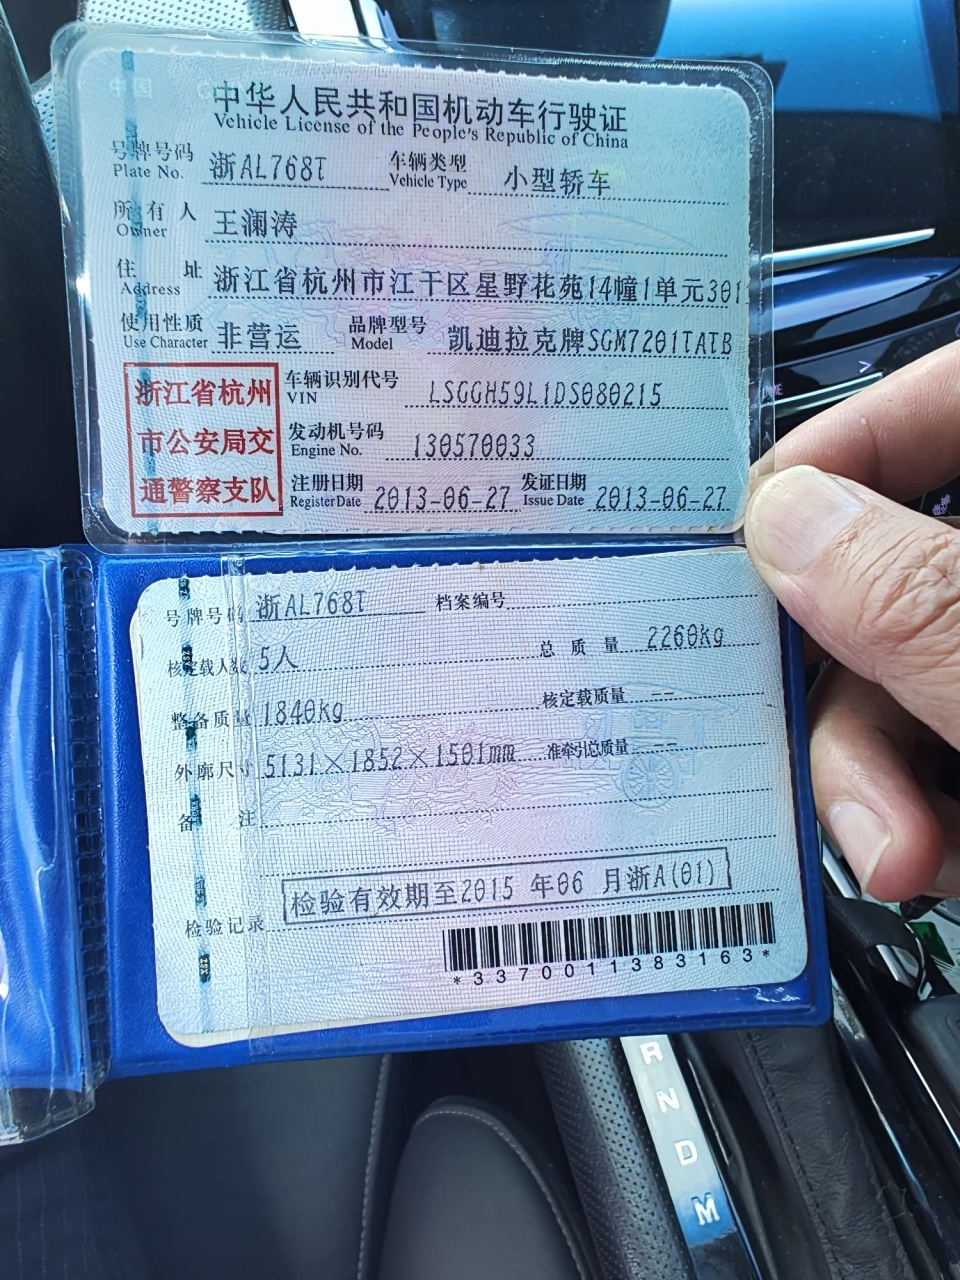 中华人民共和国机动车行驶证
Vehicle License of the People's Republic of China
号牌号码 浙AL768T 车辆类型 小型轿车
Plate No. Vehicle Type
所有人 王澜涛
Owner
住址 浙江省杭州市江干区星野花苑14幢1单元301
Address
使用性质 非营运 品牌型号 凯迪拉克牌SGM7201TATB
Use Character Model
浙江省杭州
市公安局交
通警察支队
车辆识别代号 LSGGH59L1DS080215
VIN
发动机号码 130570033
Engine No.
注册日期 2013-06-27 发证日期 2013-06-27
Register Date Issue Date
号牌号码 浙AL768T 档案编号
核定载人数 5人 总质量 2260kg
整备质量 1840kg 核定载质量 --
外廓尺寸 5131×1852×1501mm 准牵引总质量 --
备注
检验有效期至2015 年06 月浙A(01)
检验记录
*3370011383163*
R
N
D
M